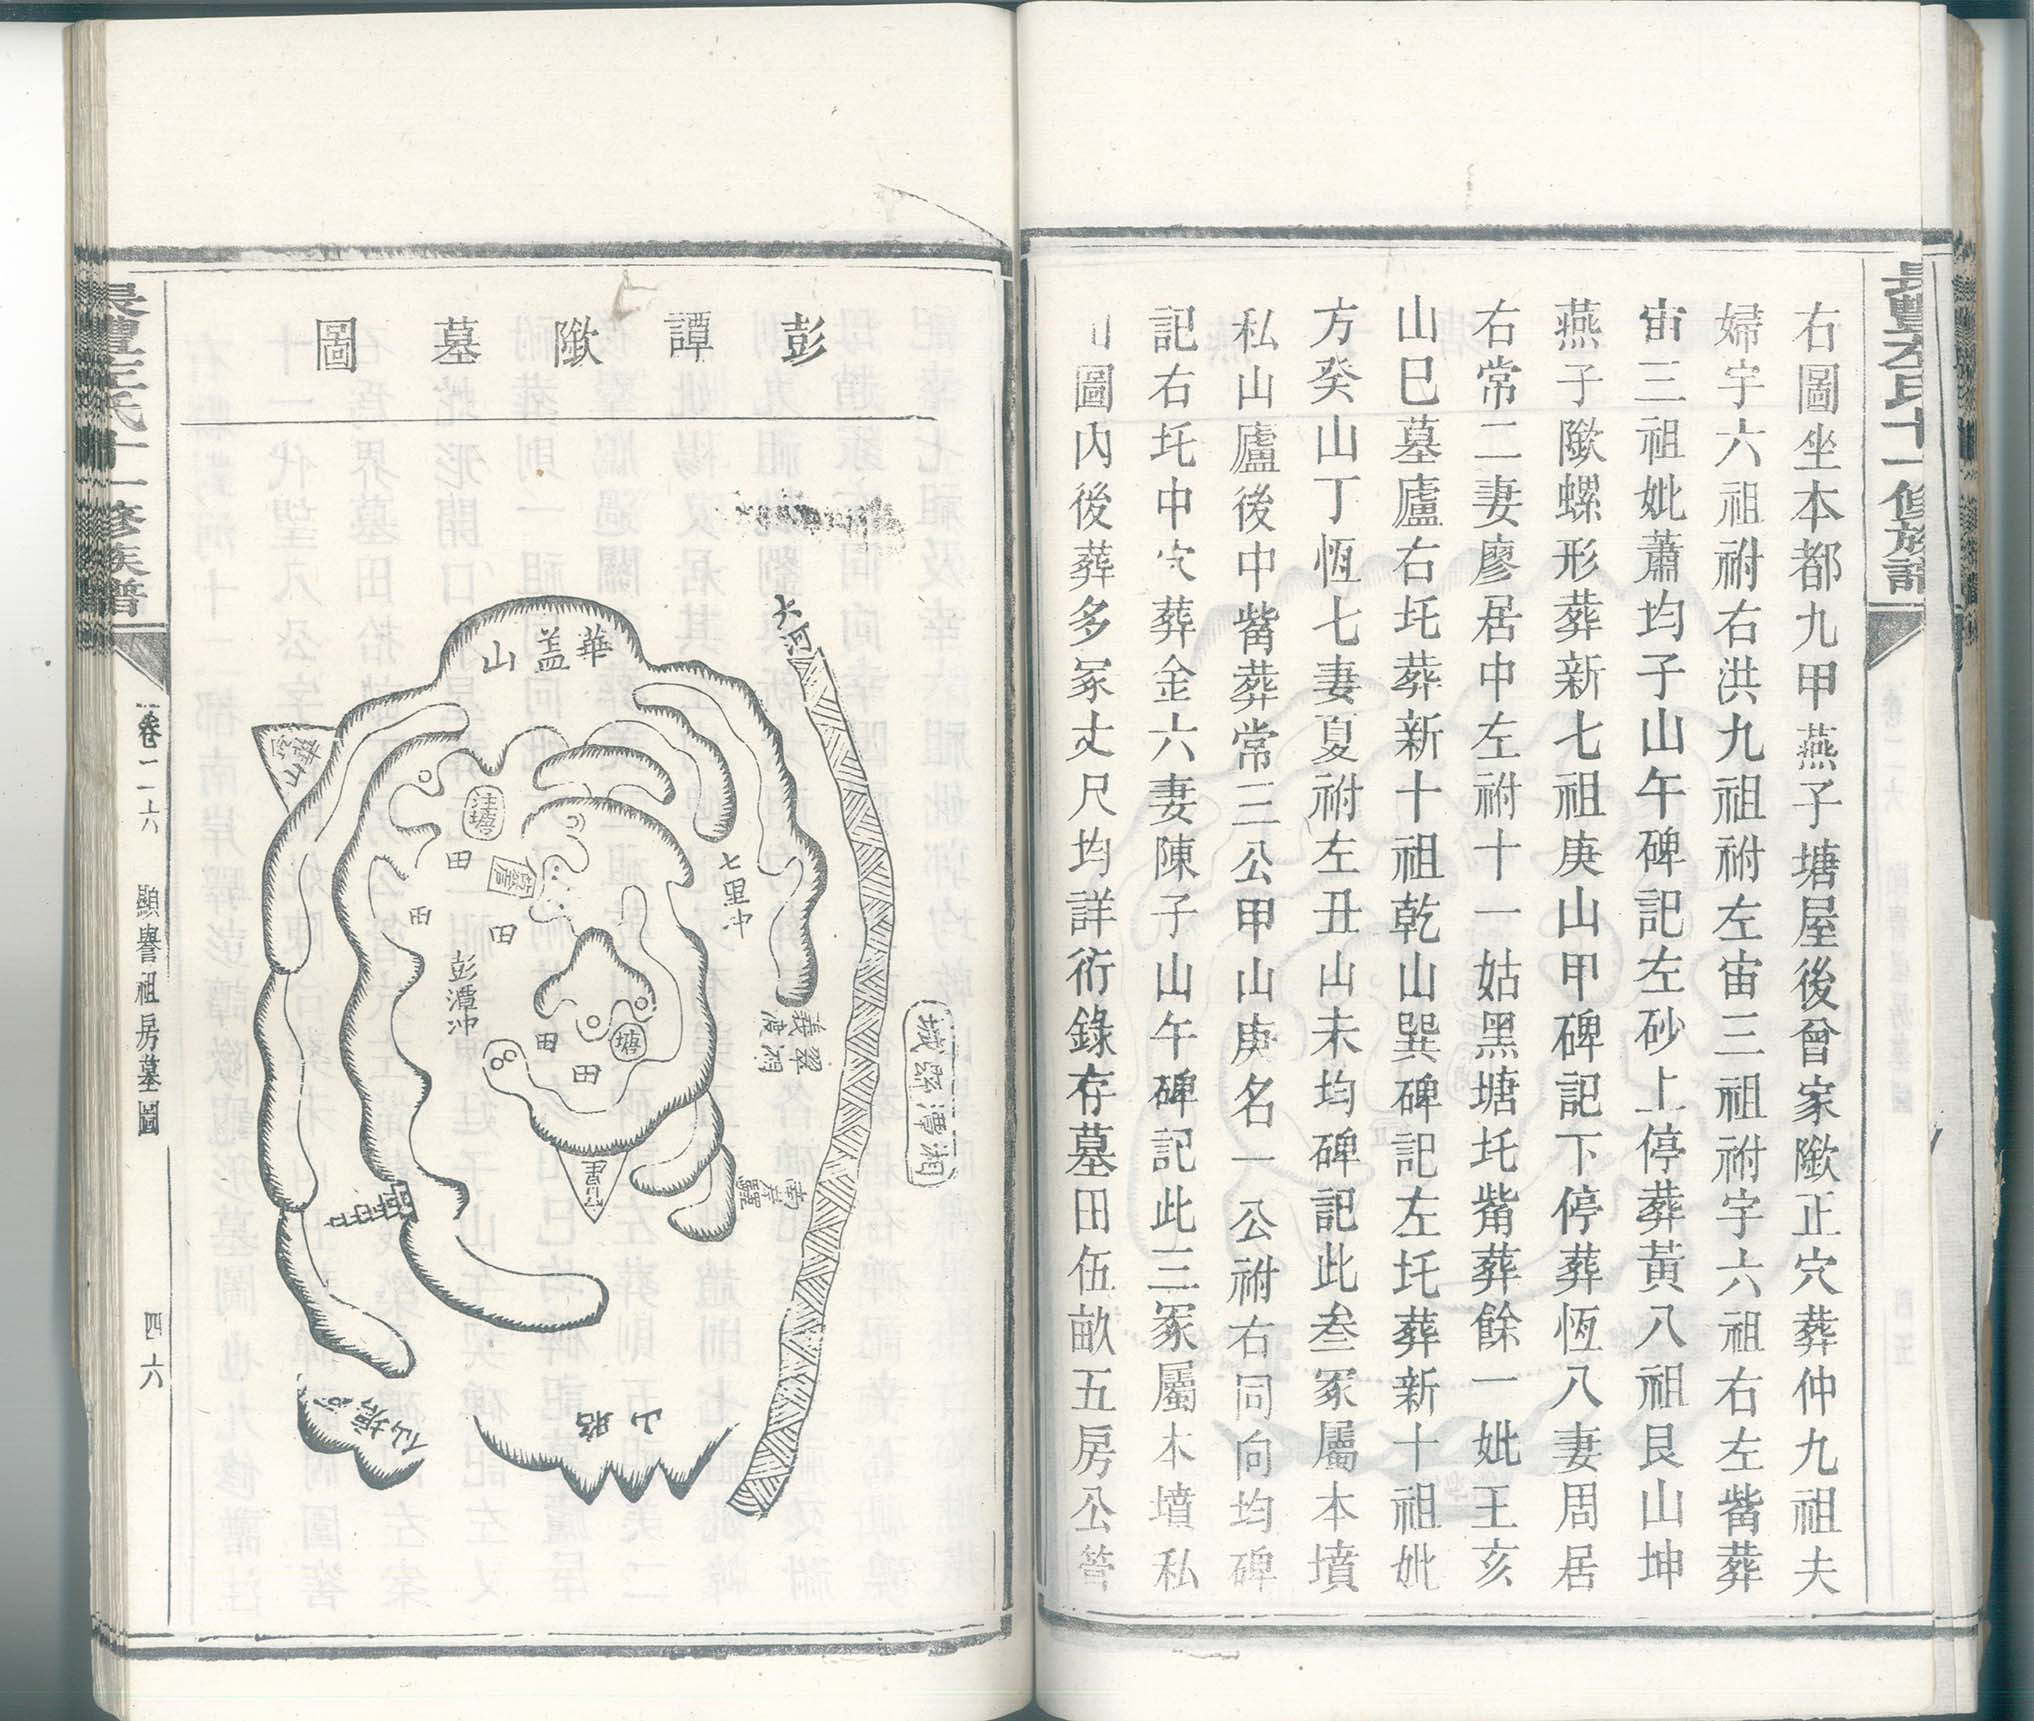 右圖坐本都九甲燕子塘屋後曾家㘓正穴葬仲九祖夫
婦宇六祖祔右洪九祖祔左宙三祖祔宇六祖右左觜葬
宙三祖妣蕭均子山午碑記左砂上停葬黃八祖艮山坤
燕子㘓螺形葬新七祖庚山甲碑記下停葬恆八妻周居
右常二妻廖居中左祔十一姑黑塘圫觜葬餘一妣王亥
山巳墓廬右圫葬新十祖乾山巽碑記左圫葬新十祖妣
方癸山丁恆七妻夏祔左丑山未均碑記此叁冢屬本墳
私山廬後中觜葬常三公甲山庚名一公祔右同向均碑
記右圫中穴葬金六妻陳子山午碑記此三冢屬本墳私
山圖內後葬多冢丈尺均詳衍錄存墓田伍畝五房公管
氏十一修族譜
彭譚㘓墓圖
大河
華蓋山
注塘
田
田
田
七里沖
彭潭沖
塘
田
田
義渡
翠洞
湘潭縣城
南岸驛
仙塘
山
氏十一修族譜
卷二六
顯譽祖房墓圖
四六